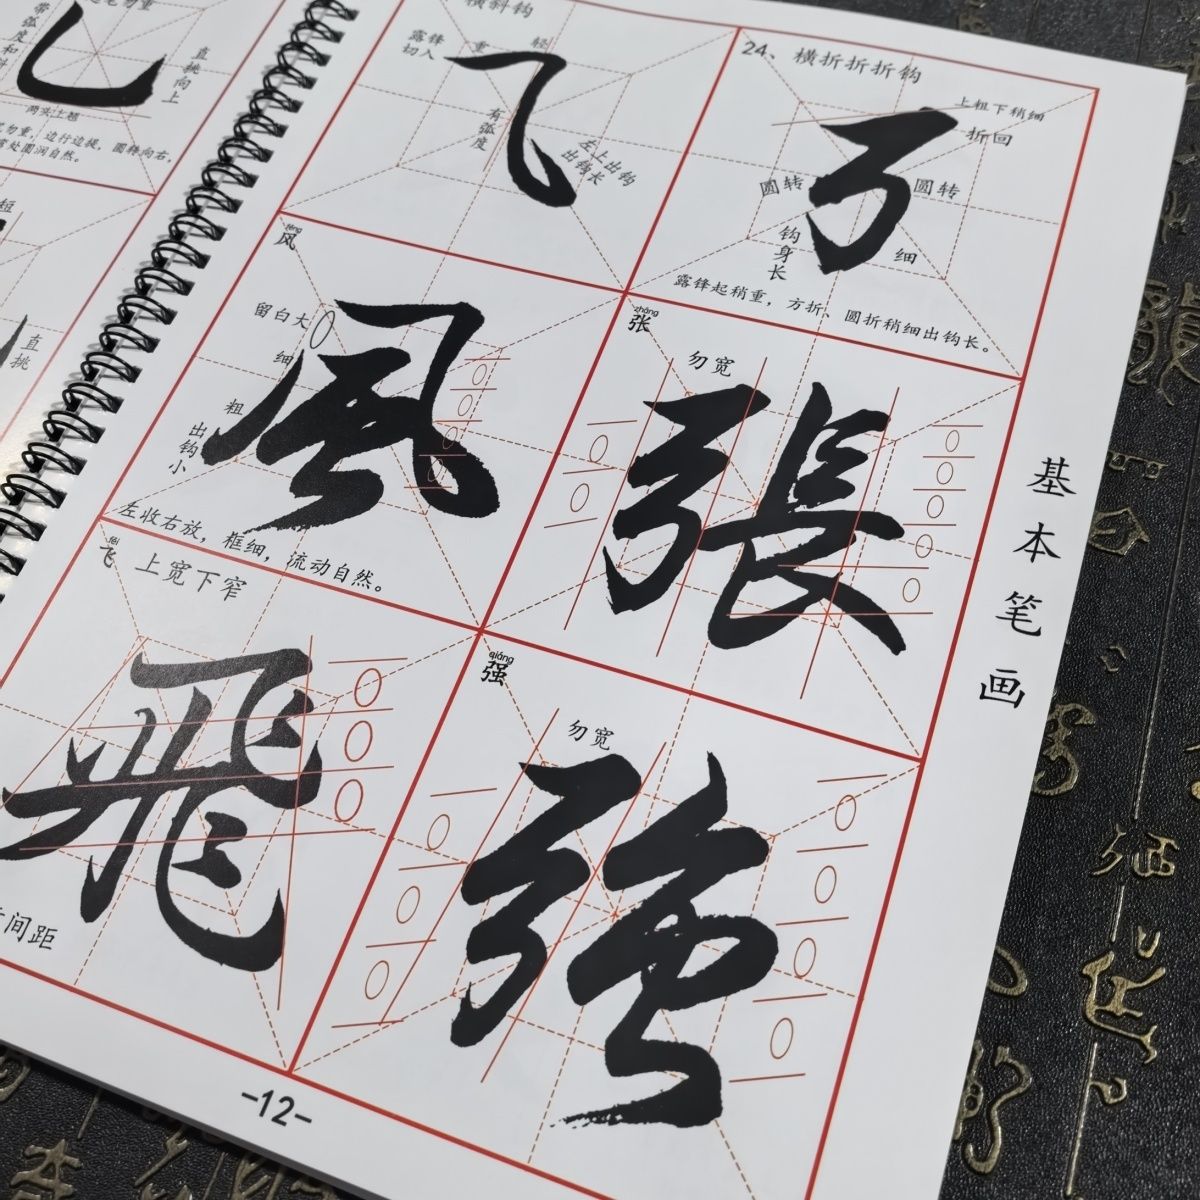 带弧度和
直挑向上
两头上翘
忌勿重，边行边提，圆转向右，
弯处圆润自然。
短
直挑
横斜钩
露锋
切入
轻
重
有弧度
左上出钩
出钩长
24、横折折折钩
上粗下稍细
折回
圆转
圆转
钩身长
细
露锋起稍重，方折、圆折稍细出钩长。
fēng
风
風
留白大
细
粗
出钩小
左收右放，框细，流动自然。
zhāng
张
勿宽
張
fēi
飞
上宽下窄
飛
间距
qiáng
强
勿宽
強
基本笔画
-12-